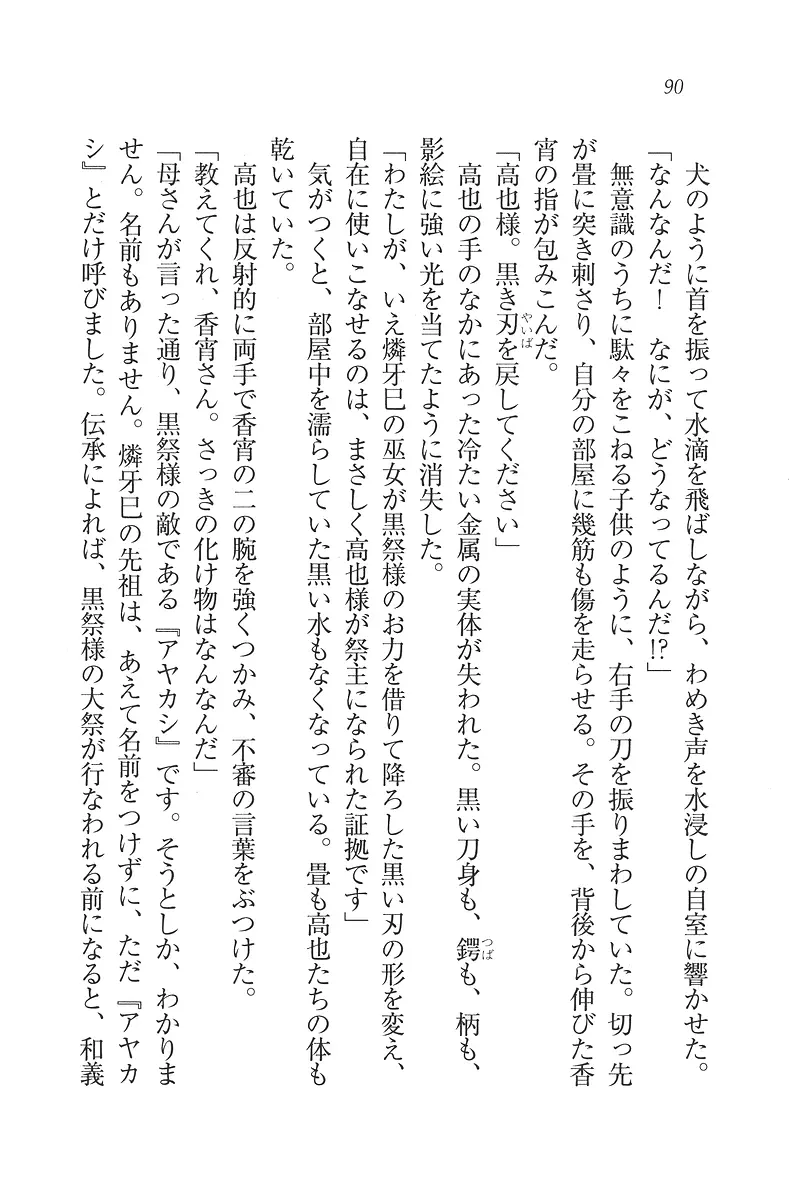 90
犬のように首を振って水滴を飛ばしながら、わめき声を水浸しの自室に響かせた。
「なんなんだ！　なにが、どうなってるんだ!?」
無意識のうちに駄々をこねる子供のように、右手の刀を振りまわしていた。切っ先
が畳に突き刺さり、自分の部屋に幾筋も傷を走らせる。その手を、背後から伸びた香
宵の指が包みこんだ。
「高也様。黒き刃やいばを戻してください」
高也の手のなかにあった冷たい金属の実体が失われた。黒い刀身も、鍔つばも、柄も、
影絵に強い光を当てたように消失した。
「わたしが、いえ燐牙巳の巫女が黒祭様のお力を借りて降ろした黒い刃の形を変え、
自在に使いこなせるのは、まさしく高也様が祭主になられた証拠です」
気がつくと、部屋中を濡らしていた黒い水もなくなっている。畳も高也たちの体も
乾いていた。
高也は反射的に両手で香宵の二の腕を強くつかみ、不審の言葉をぶつけた。
「教えてくれ、香宵さん。さっきの化け物はなんなんだ」
「母さんが言った通り、黒祭様の敵である『アヤカシ』です。そうとしか、わかりま
せん。名前もありません。燐牙巳の先祖は、あえて名前をつけずに、ただ『アヤカ
シ』とだけ呼びました。伝承によれば、黒祭様の大祭が行なわれる前になると、和義